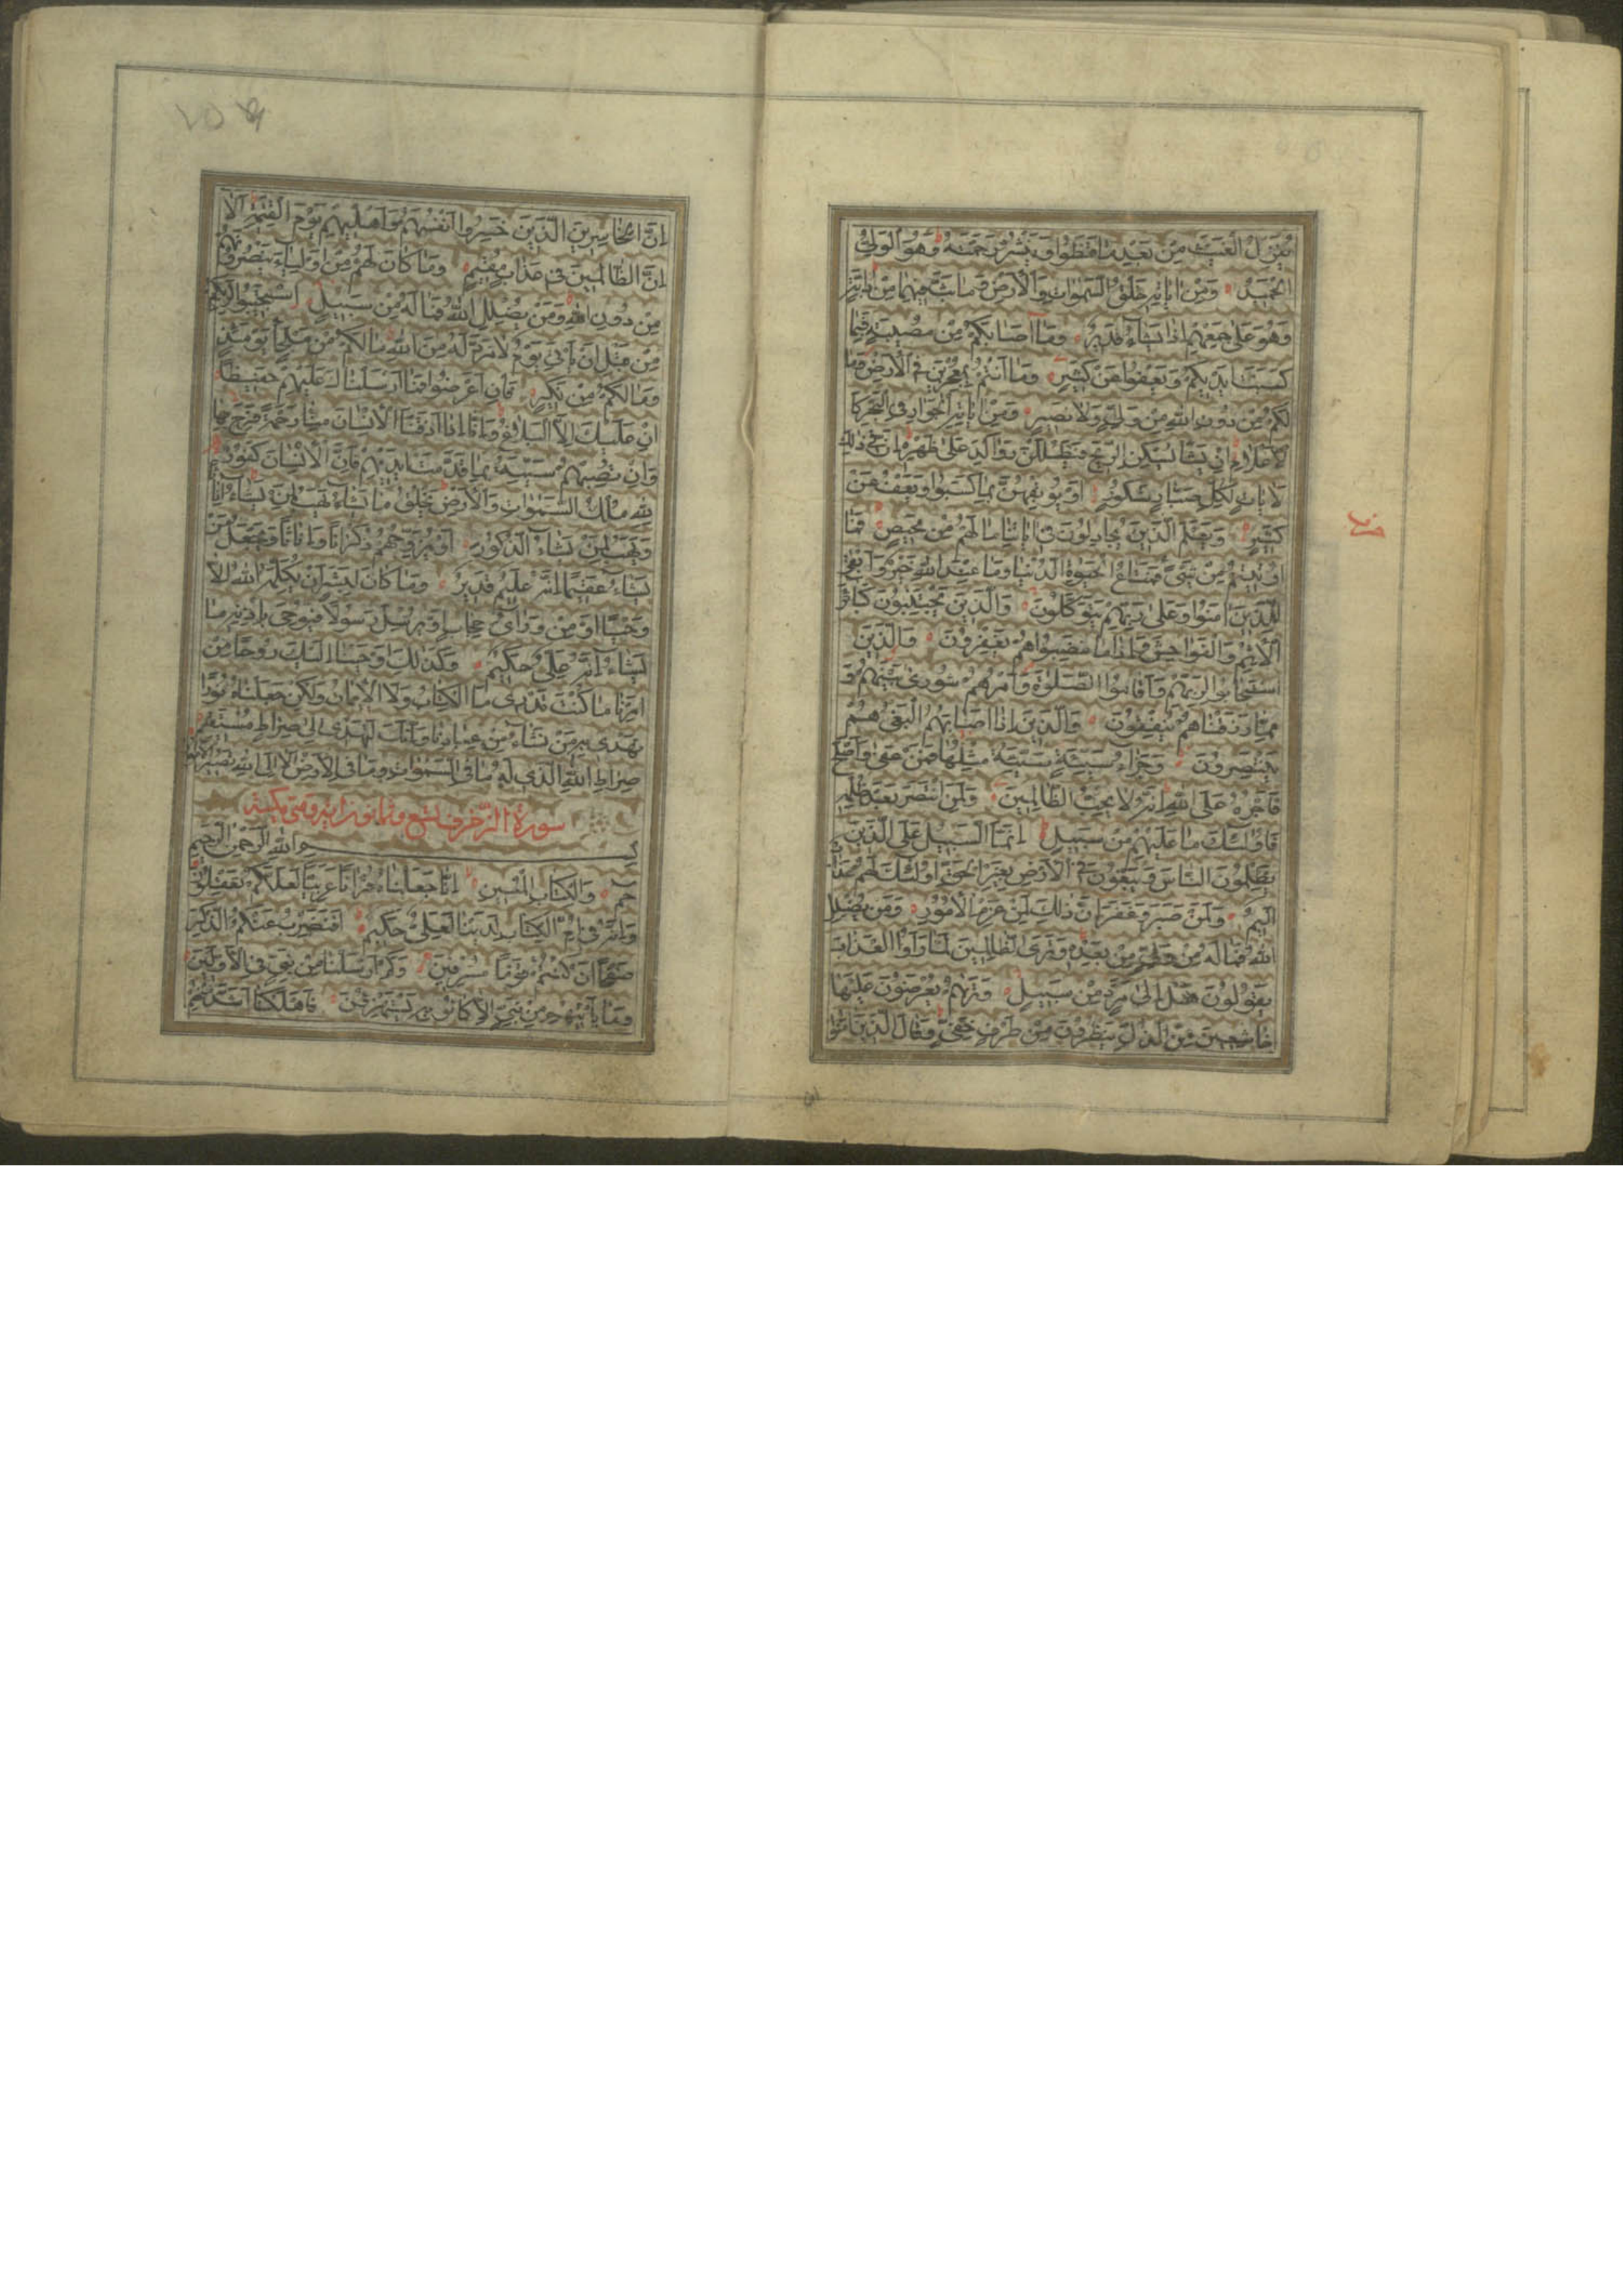 يُنَزِّلُ الْغَيْثَ مِنْ بَعْدِ مَا قَنَطُوا وَيَنْشُرُ رَحْمَتَهُ وَهُوَ الْوَلِيُّ
الْحَمِيدُ وَمِنْ اٰيَاتِهِ خَلْقُ السَّمٰوَاتِ وَالْأَرْضِ وَمَا بَثَّ فِيهِمَا مِنْ دَابَّةٍ
وَهُوَ عَلٰى جَمْعِهِمْ إِذَا يَشَاءُ قَدِيرٌ وَمَا أَصَابَكُمْ مِنْ مُصِيبَةٍ فَبِمَا
كَسَبَتْ أَيْدِيكُمْ وَيَعْفُوا عَنْ كَثِيرٍ وَمَا أَنْتُمْ بِمُعْجِزِينَ فِي الْأَرْضِ وَمَا
لَكُمْ مِنْ دُونِ اللّٰهِ مِنْ وَلِيٍّ وَلَا نَصِيرٍ وَمِنْ اٰيَاتِهِ الْجَوَارِ فِي الْبَحْرِ كَا
لْأَعْلَامِ إِنْ يَشَأْ يُسْكِنِ الرِّيحَ فَيَظْلَلْنَ رَوَاكِدَ عَلٰى ظَهْرِهِ إِنَّ فِي ذٰلِكَ
لَاٰيَاتٍ لِكُلِّ صَبَّارٍ شَكُورٍ أَوْ يُوبِقْهُنَّ بِمَا كَسَبُوا وَيَعْفُ عَنْ
كَثِيرٍ وَيَعْلَمَ الَّذِينَ يُجَادِلُونَ فِي اٰيَاتِنَا مَا لَهُمْ مِنْ مَحِيصٍ فَمَا
أُوتِيتُمْ مِنْ شَيْءٍ فَمَتَاعُ الْحَيٰوةِ الدُّنْيَا وَمَا عِنْدَ اللّٰهِ خَيْرٌ وَأَبْقٰى
لِلَّذِينَ اٰمَنُوا وَعَلٰى رَبِّهِمْ يَتَوَكَّلُونَ وَالَّذِينَ يَجْتَنِبُونَ كَبَائِرَ
الْإِثْمِ وَالْفَوَاحِشَ وَإِذَا مَا غَضِبُوا هُمْ يَغْفِرُونَ وَالَّذِينَ
اسْتَجَابُوا لِرَبِّهِمْ وَأَقَامُوا الصَّلٰوةَ وَأَمْرُهُمْ شُورٰى بَيْنَهُمْ وَ
مِمَّا رَزَقْنَاهُمْ يُنْفِقُونَ وَالَّذِينَ إِذَا أَصَابَهُمُ الْبَغْيُ هُمْ
يَنْتَصِرُونَ وَجَزَاءُ سَيِّئَةٍ سَيِّئَةٌ مِثْلُهَا فَمَنْ عَفٰى وَأَصْلَحَ
فَأَجْرُهُ عَلَى اللّٰهِ إِنَّهُ لَا يُحِبُّ الظَّالِمِينَ وَلَمَنِ انْتَصَرَ بَعْدَ ظُلْمِهِ
فَأُولٰئِكَ مَا عَلَيْهِمْ مِنْ سَبِيلٍ إِنَّمَا السَّبِيلُ عَلَى الَّذِينَ
يَظْلِمُونَ النَّاسَ وَيَبْغُونَ فِي الْأَرْضِ بِغَيْرِ الْحَقِّ أُولٰئِكَ لَهُمْ عَذَابٌ
أَلِيمٌ وَلَمَنْ صَبَرَ وَغَفَرَ إِنَّ ذٰلِكَ لَمِنْ عَزْمِ الْأُمُورِ وَمَنْ يُضْلِلِ
اللّٰهُ فَمَا لَهُ مِنْ وَلِيٍّ مِنْ بَعْدِهِ وَتَرَى الظَّالِمِينَ لَمَّا رَأَوُا الْعَذَابَ
يَقُولُونَ هَلْ إِلٰى مَرَدٍّ مِنْ سَبِيلٍ وَتَرٰهُمْ يُعْرَضُونَ عَلَيْهَا
خَاشِعِينَ مِنَ الذُّلِّ يَنْظُرُونَ مِنْ طَرْفٍ خَفِيٍّ وَقَالَ الَّذِينَ اٰمَنُوا
إِنَّ الْخَاسِرِينَ الَّذِينَ خَسِرُوا أَنْفُسَهُمْ وَأَهْلِيهِمْ يَوْمَ الْقِيٰمَةِ أَلَا
إِنَّ الظَّالِمِينَ فِي عَذَابٍ مُقِيمٍ وَمَا كَانَ لَهُمْ مِنْ أَوْلِيَاءَ يَنْصُرُونَهُمْ
مِنْ دُونِ اللّٰهِ وَمَنْ يُضْلِلِ اللّٰهُ فَمَا لَهُ مِنْ سَبِيلٍ اسْتَجِيبُوا لِرَبِّكُمْ
مِنْ قَبْلِ أَنْ يَأْتِيَ يَوْمٌ لَا مَرَدَّ لَهُ مِنَ اللّٰهِ مَا لَكُمْ مِنْ مَلْجَأٍ يَوْمَئِذٍ
وَمَا لَكُمْ مِنْ نَكِيرٍ فَإِنْ أَعْرَضُوا فَمَا أَرْسَلْنَاكَ عَلَيْهِمْ حَفِيظًا
إِنْ عَلَيْكَ إِلَّا الْبَلَاغُ وَإِنَّا إِذَا أَذَقْنَا الْإِنْسَانَ مِنَّا رَحْمَةً فَرِحَ بِهَا
وَإِنْ تُصِبْهُمْ سَيِّئَةٌ بِمَا قَدَّمَتْ أَيْدِيهِمْ فَإِنَّ الْإِنْسَانَ كَفُورٌ
لِلّٰهِ مُلْكُ السَّمٰوَاتِ وَالْأَرْضِ يَخْلُقُ مَا يَشَاءُ يَهَبُ لِمَنْ يَشَاءُ إِنَاثًا
وَيَهَبُ لِمَنْ يَشَاءُ الذُّكُورَ أَوْ يُزَوِّجُهُمْ ذُكْرَانًا وَإِنَاثًا وَيَجْعَلُ مَنْ
يَشَاءُ عَقِيمًا إِنَّهُ عَلِيمٌ قَدِيرٌ وَمَا كَانَ لِبَشَرٍ أَنْ يُكَلِّمَهُ اللّٰهُ إِلَّا
وَحْيًا أَوْ مِنْ وَرَاءِ حِجَابٍ أَوْ يُرْسِلَ رَسُولًا فَيُوحِيَ بِإِذْنِهِ مَا
يَشَاءُ إِنَّهُ عَلِيٌّ حَكِيمٌ وَكَذٰلِكَ أَوْحَيْنَا إِلَيْكَ رُوحًا مِنْ
أَمْرِنَا مَا كُنْتَ تَدْرِي مَا الْكِتَابُ وَلَا الْإِيمَانُ وَلٰكِنْ جَعَلْنَاهُ نُورًا
نَهْدِي بِهِ مَنْ نَشَاءُ مِنْ عِبَادِنَا وَإِنَّكَ لَتَهْدِي إِلٰى صِرَاطٍ مُسْتَقِيمٍ
صِرَاطِ اللّٰهِ الَّذِي لَهُ مَا فِي السَّمٰوَاتِ وَمَا فِي الْأَرْضِ أَلَا إِلَى اللّٰهِ تَصِيرُ الْأُمُورُ
سورة الزخرف تسع وثمانون اية وهي مكية
بسم اللّٰه الرَّحْمٰنِ الرَّحِيمِ
حٰم وَالْكِتَابِ الْمُبِينِ إِنَّا جَعَلْنَاهُ قُرْاٰنًا عَرَبِيًّا لَعَلَّكُمْ تَعْقِلُونَ
وَإِنَّهُ فِي أُمِّ الْكِتَابِ لَدَيْنَا لَعَلِيٌّ حَكِيمٌ أَفَنَضْرِبُ عَنْكُمُ الذِّكْرَ
صَفْحًا أَنْ كُنْتُمْ قَوْمًا مُسْرِفِينَ وَكَمْ أَرْسَلْنَا مِنْ نَبِيٍّ فِي الْأَوَّلِينَ
وَمَا يَأْتِيهِمْ مِنْ نَبِيٍّ إِلَّا كَانُوا بِهِ يَسْتَهْزِئُونَ فَأَهْلَكْنَا أَشَدَّ مِنْهُمْ